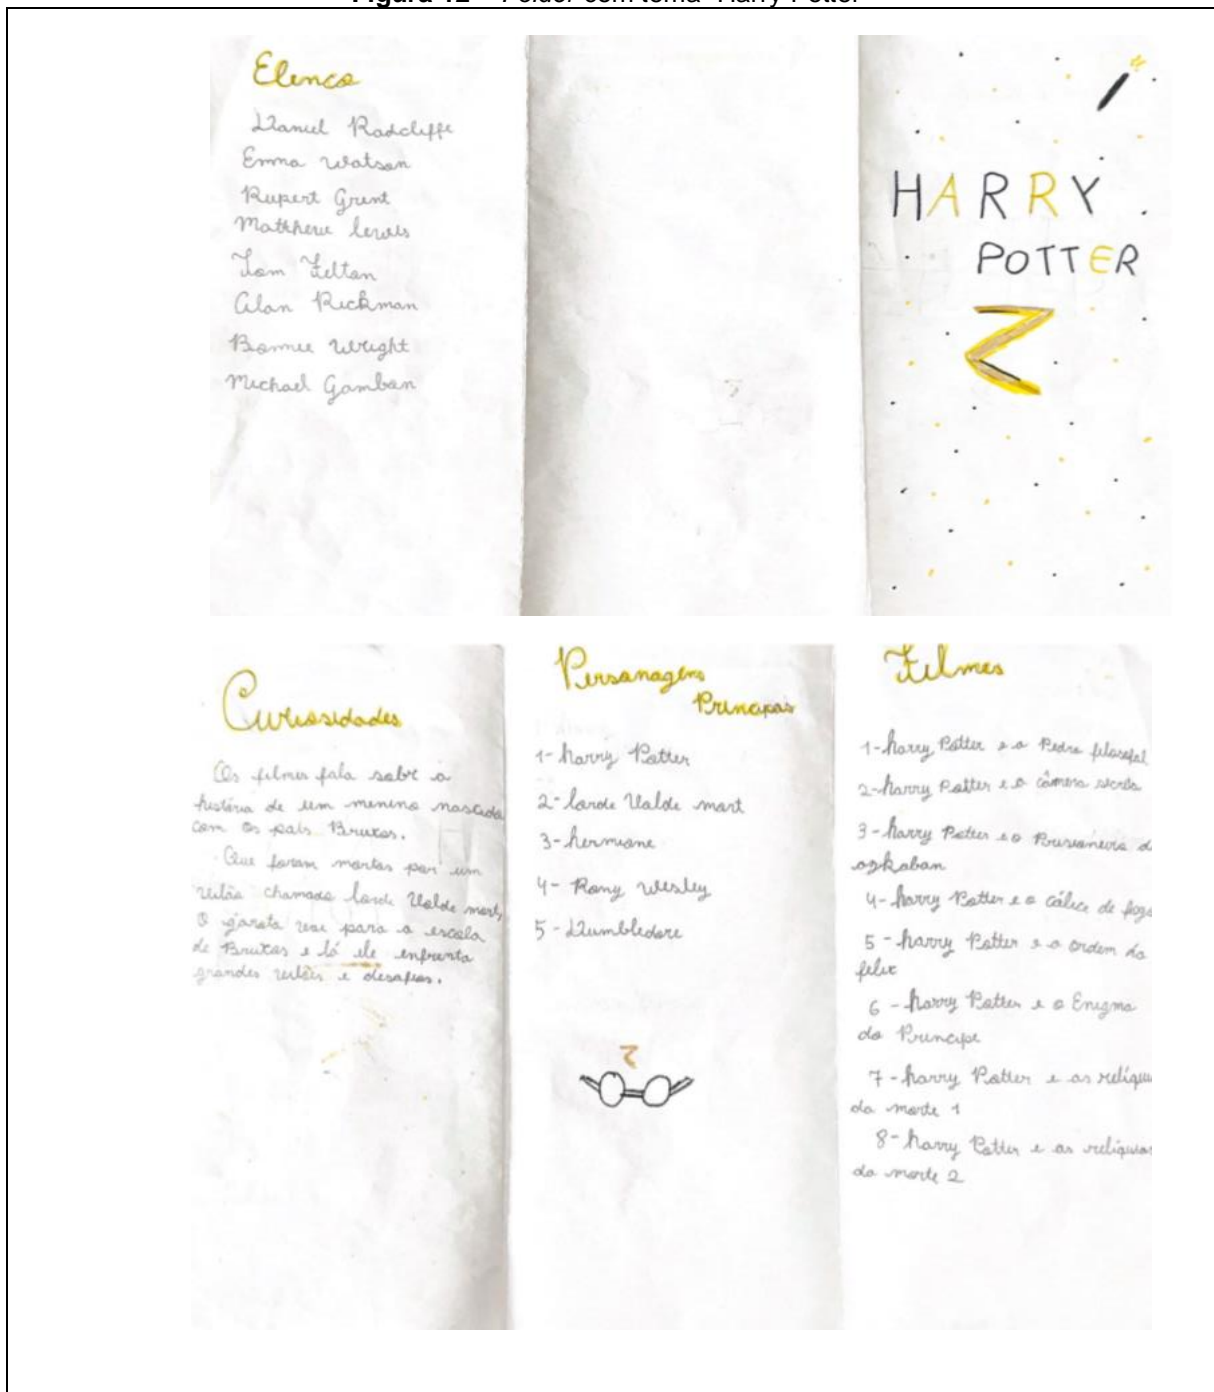 Elenco
Daniel Radcliffe
Emma Watson
Rupert Grent
Matthew lewis
Tom Felton
Alan Rickman
Bonnie Wright
Michael Gamban
HARRY
POTTER
Curiosidades
Os filmes fala sobre a
história de um menino nascido
com os pais Bruxos.
Que foram mortos por um
vilão chamado lorde Valde mort,
O garoto vai para a escola
de Bruxos e lá ele enfrenta
grandes vilões e desafios.
Personagens
Principais
1- harry Potter
2- lorde Valde mort
3- hermione
4- Rony Wesley
5- Dumbledore
Filmes
1- harry Potter e a Pedra filosofal
2- harry Potter e a câmera secreta
3- harry Potter e o Prisioneiro d
azkaban
4- harry Potter e o cálice de fogo
5- harry Potter e a ordem da
felix
6- harry Potter e o Enigma
do Principe
7- harry Potter e as relíqui
da morte 1
8- harry Potter e as relíquias
da morte 2